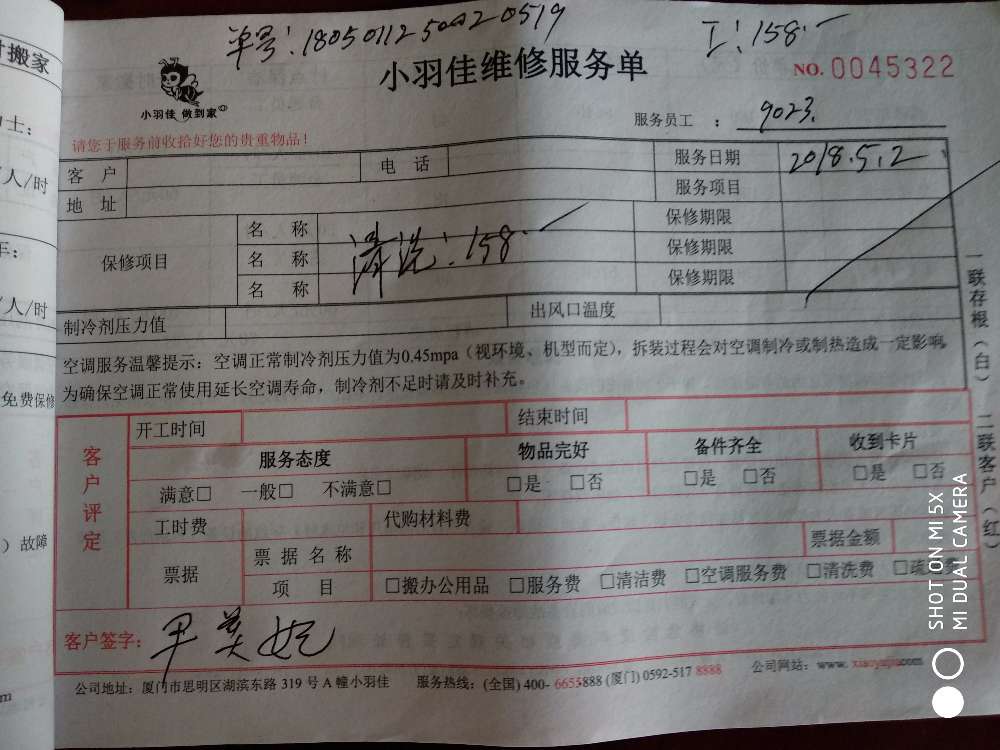 单号：18050112500020519
I：158.-
小羽佳维修服务单
NO. 0045322
小羽佳 做到家
服务员工 ： 9023.
请您于服务前收拾好您的贵重物品！
客 户 电 话 服务日期 2018.5.2
地 址 服务项目
保修项目 名 称 保修期限
名 称 清洗：158.- 保修期限
名 称 保修期限
制冷剂压力值 出风口温度
空调服务温馨提示：空调正常制冷剂压力值为0.45mpa（视环境、机型而定），拆装过程会对空调制冷或制热造成一定影响，
为确保空调正常使用延长空调寿命，制冷剂不足时请及时补充。
客户评定
开工时间 结束时间
服务态度 物品完好 备件齐全 收到卡片
满意□ 一般□ 不满意□ □是 □否 □是 □否 □是 □否
工时费 代购材料费
票据 票据名称 票据金额
项 目 □搬办公用品 □服务费 □清洁费 □空调服务费 □清洗费
客户签字：
公司地址：厦门市思明区湖滨东路 319 号 A 幢小羽佳 服务热线：(全国) 400- 6653888 (厦门) 0592-517 8888 公司网站：www. xiaoyujia.com
一联存根（白） 二联客户（红）
计搬家
力士：
/人/时
车：
/人/时
免费保修
）故障
m
SHOT ON MI 5X
MI DUAL CAMERA